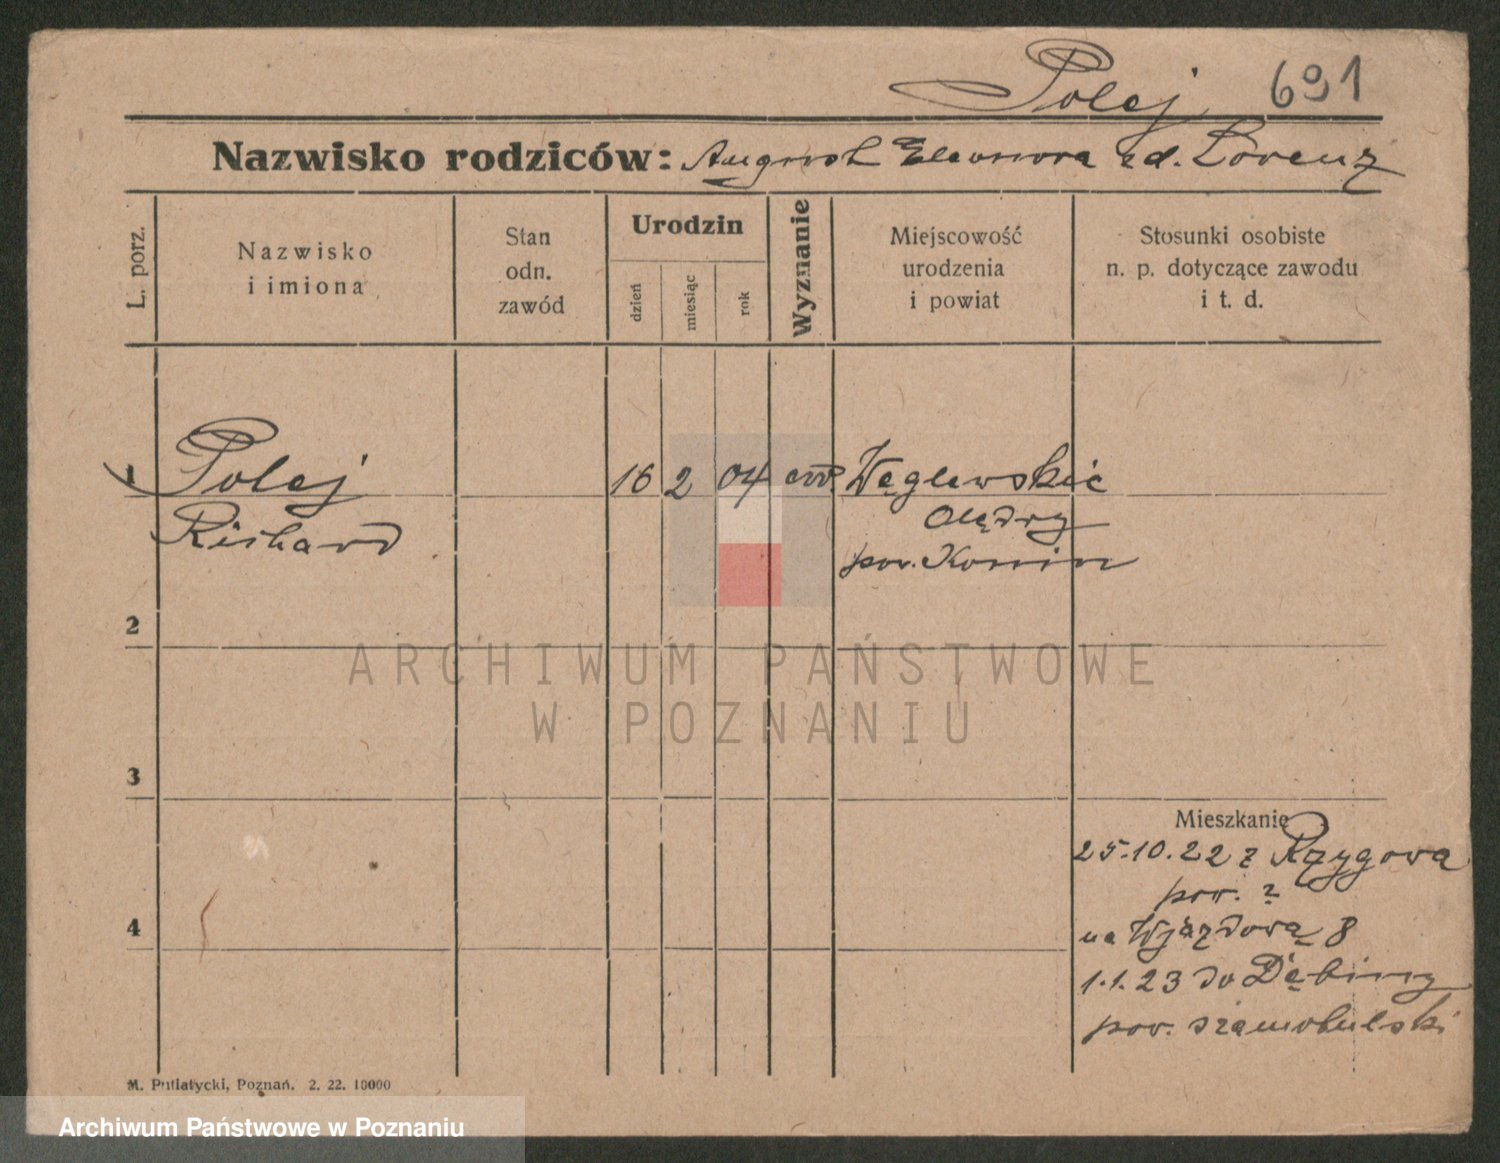 Polej 691
Nazwisko rodziców: August Eleonora zd. Lorenz
L. porz.
Nazwisko
i imiona
Stan
odn.
zawód
Urodzin
dzień
miesiąc
rok
Wyznanie
Miejscowość
urodzenia
i powiat
Stosunki osobiste
n. p. dotyczące zawodu
i t. d.
1 Polej 16 2 04 Węglewskie
Richard Olędry
pow. Konin
2
ARCHIWUM PAŃSTWOWE
W POZNANIU
3
4
Mieszkanie
25.10.22 z Rzygowa
pow. ?
na Wjazdową 8
1.1.23 do Dębiny
pow. szamotulski
M. Putiatycki, Poznań. 2. 22. 10000
Archiwum Państwowe w Poznaniu